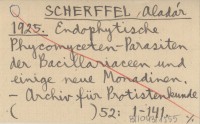 SCHERFFEL, Aladár
1925. Endophytische
Phycomyceten-Parasiten
der Bacillariaceen und
einige neue Monadinen.
- Archiv für Protistenkunde
( ) 52: 1-141.